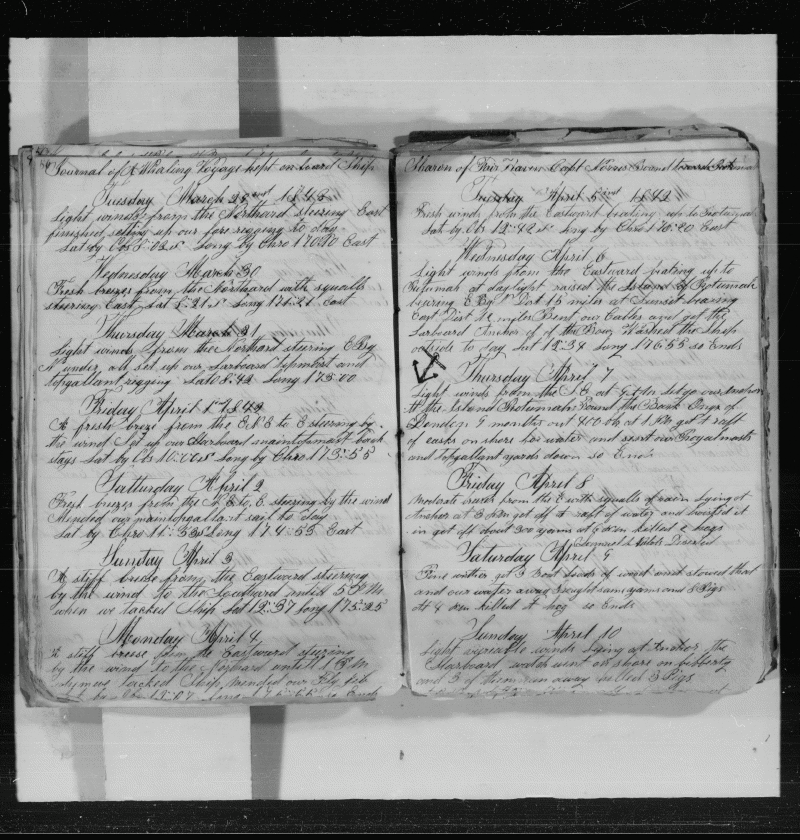 Journal of A Whaling Voyage kept on board Ship
Tuesday March 29 1842
Light winds from the Northard steering East
finished setting up our fore rigging to day
Lat by Obs 8:02 S Long by Chro 170:20 East
Wednesday March 30
Fresh breezes from the Northard with squalls
steering East Lat 8:21 S Long 171:21 East
Thursday March 31
Light winds from the Northard steering E By
N under all set up our Larboard
topgallant rigging Lat 8:42 Long 173:00
Friday April 1st 1842
A fresh breze from the E N E to E steering by
the wind Set up our Starboard back
stays Lat by Obs 10:00 S Long by Chro 173:55
Satturday April 2
Fresh brezes from the N E to E steering by the wind
Mended our maintopgallant sail to day
Lat by Chro 11: Long 174:53 East
Sunday April 3
A stiff breese from the Eastward steering
by the wind to the Southard until 5 P M
when we tacked Ship Lat 12:37 Long 175:25
Monday April 4
A stiff breese from the Eastward steering
by the wind to the Norhard untill 1 P M
when we tacked Ship mended our Fly jib
Sharon of Fair Haven Capt Norris Bound towards Rotumah
Tuesday April 5 1842
Fresh winds from the Eastward beating up to Rotumah
Lat by Obs 12:42 S Long by Chro 176:20 East
Wednesday April 6
Light winds from the Eastward beating up to
Rotumah at daylight raised the Island of Rotumah
bearing E By N Dist 15 miles at Sunset bearing
East Dist miles Bent our Cables and got the
Larboard Anchor of of the Bow Washed the Ship
outside to day Lat 12:34 Long 176:55 so Ends
Thursday April 7
Light winds from the S E at let go our Anchor
at the Island Rotumah found the Bark of
London 9 months out 400 bb at 1 P M got a raft
of casks on shore for water and sent our Royal masts
and Topgallant yards down so Ends
Friday April 8
Moderate brezes from the E with squalls of rain Lying at
Anchor at got off a raft of water and hoisted it
in got off about 300 yams at killed 2 hogs
Deserted
Saturday April 9
Fine wether got 3 boat loads of wood and stowed that
and our water away bought some yams and 8 Pigs
At 4 killed A hog so Ends
Sunday April 10
Light winds Lying at Anchor the
Starboard watch went on shore on liberty
and 3 of them run away killed 3 Pigs